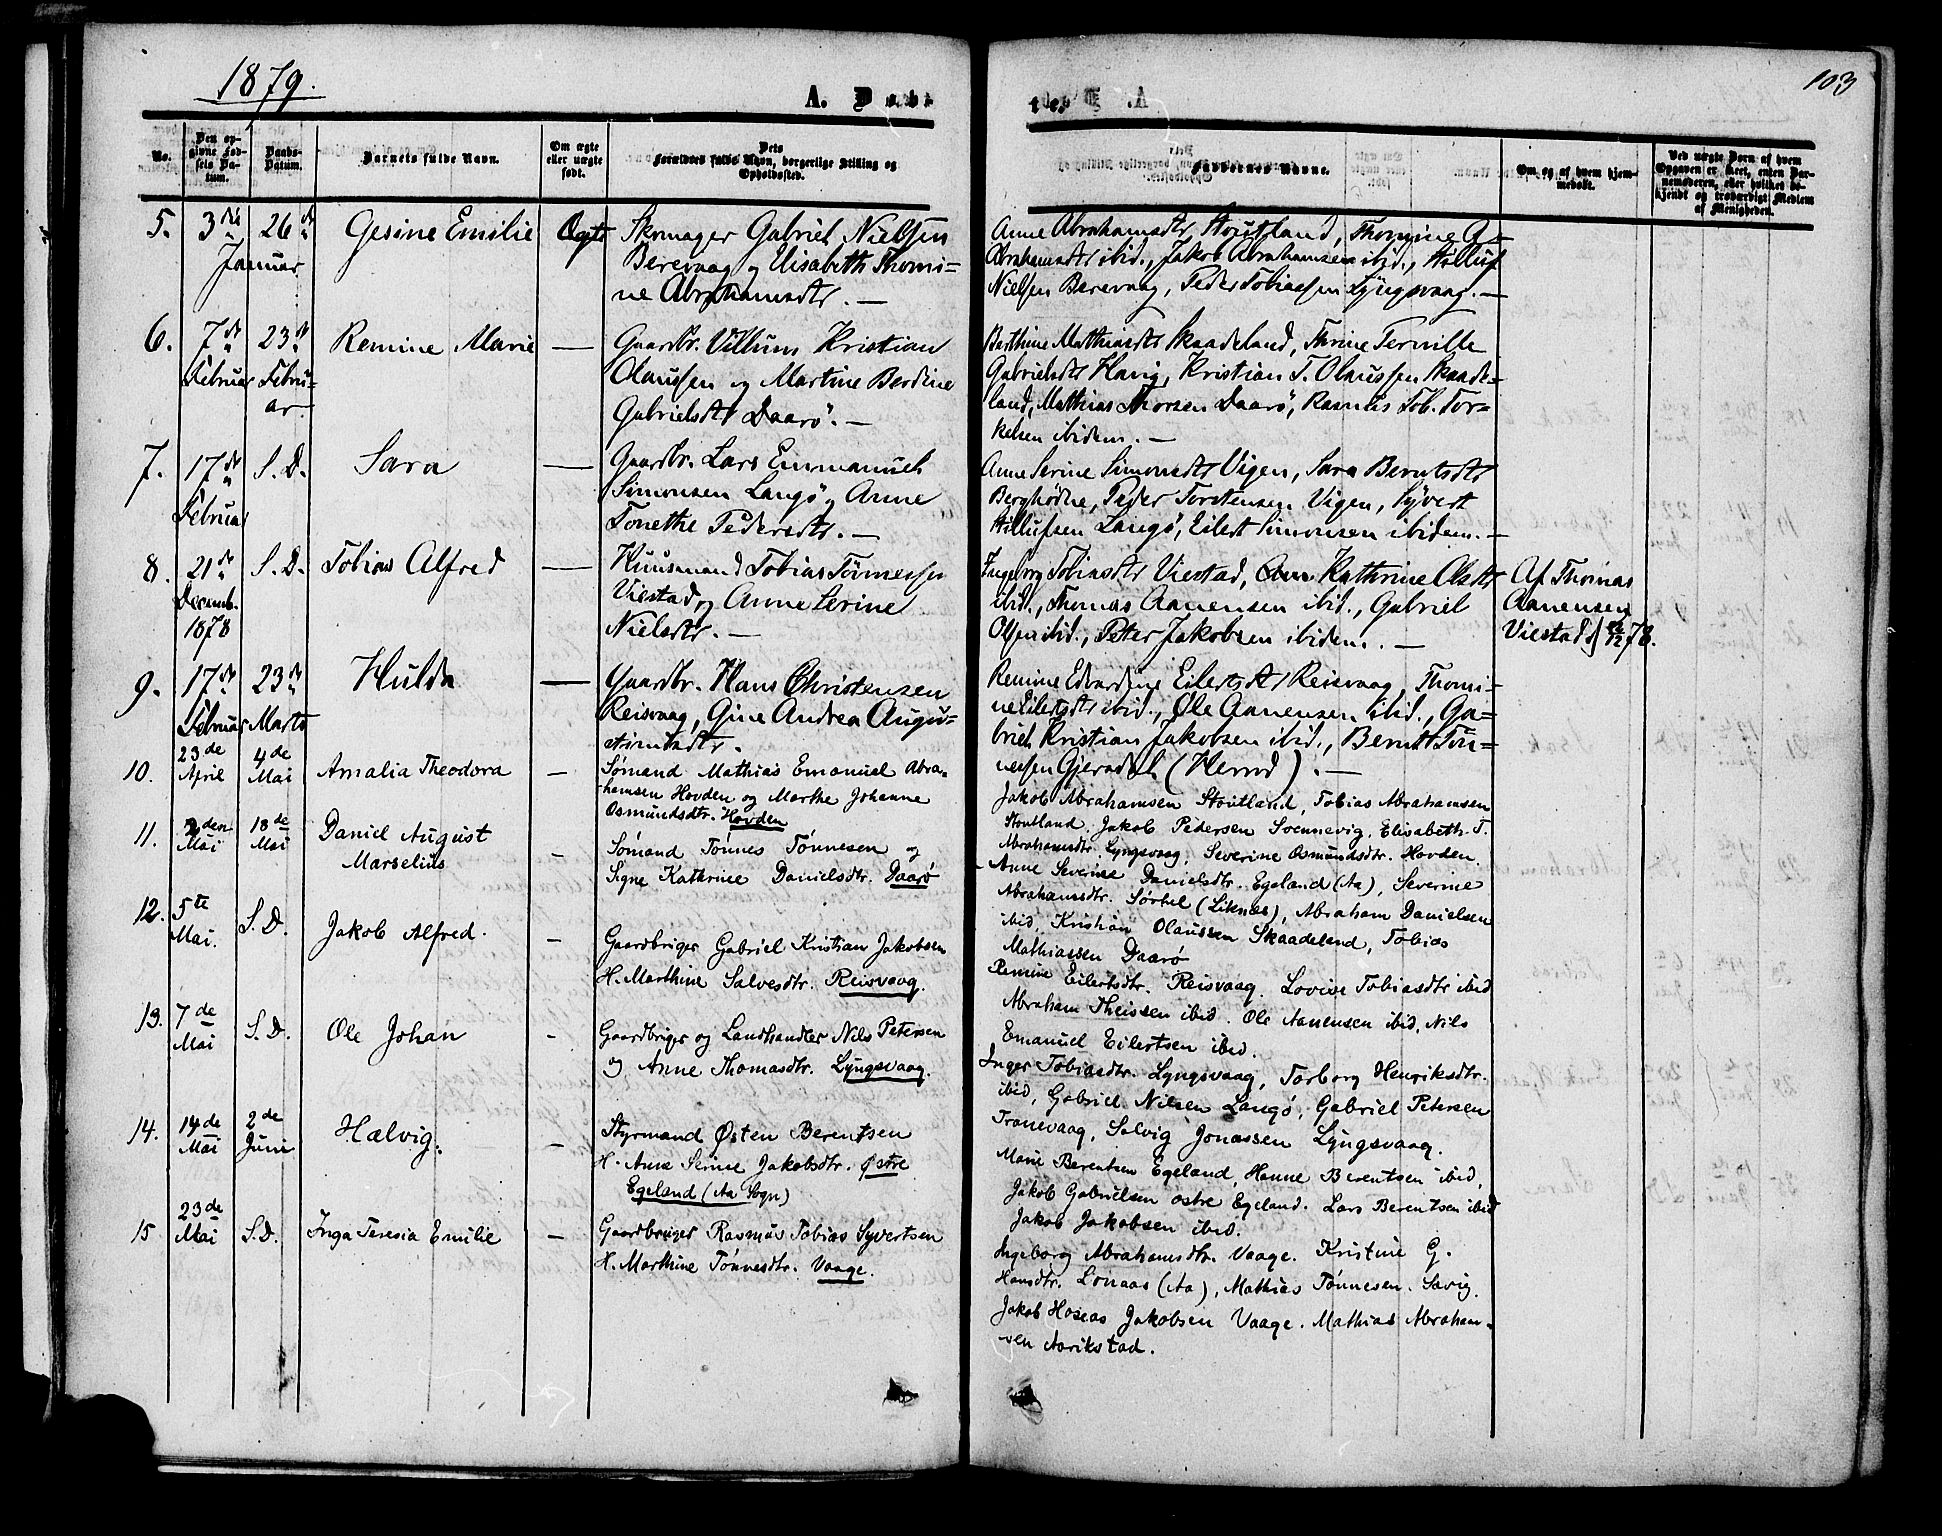 1879.
A. Døbte
103
No.
Den opgivne Fødsels Datum.
Daabs-Datum.
Barnets fulde Navn.
Om ægte eller uægte født.
Dets Forældres fulde Navn, borgerlige Stilling og Opholdssted.
Faddernes Navne.
Om og af hvem hjemmedøbt.
Ved uægte Børn af hvem Opgaven er skeet, enten Barnemoderen, eller hvilket bekjendt og troværdigt Medlem af Menigheden.
5. 3die Januar 26de Gesine Emilie Ægte
Skomager Gabriel Nielsen
Berevaag og Elisabeth Thomi-
ne Abrahamsdtr. —
Anne Abrahamsdtr Stoutland, Thomine G-
Abrahamsdtr ibid., Jakob Abrahamsen ibid., Hilluf
Nielsen Berevaag, Peder Tobiassen Lyngsvaag. —
6. 7de Februar 23de Febru-
ar Remine Marie —
Gaardbr. Villum Kristian
Olaussen og Martine Berdine
Gabrielsdtr Daarø. —
Berthine Mathiasdtr Skaadeland, Thrine Terville
Gabrielsdtr Havig, Kristian T. Olaussen Skaade-
land, Mathias Thorsen Daarø, Rasmus Tob. Tor-
kelsen ibidem. —
7. 17de Februar S. D. Sara —
Gaardbr. Lars Emmanuel
Simonsen Langø og Anne
Tonette Pedersdtr. —
Anne Serine Simonsdtr Vigen, Sara Berntsdtr
Berghødne, Peder Torstensen Vigen, Syvert
Hillufsen Langø, Eilert Simonsen ibidem. —
8. 21de Decemb. 1878 S. D. Tobias Alfred —
Huusmand Tobias Tønnessen
Viestad og Anne Serine
Nielsdtr. —
Ingeborg Tobiasdtr Viestad, Kathrine Olsdtr
ibid., Thomas Aanensen ibid., Gabriel
Olsen ibid., Peter Jakobsen ibidem. —
Af Thomas
Aanensen
Viestad 22/12 78.
9. 17de Februar 23de Marts Hulda —
Gaardbr. Hans Christensen
Reisvaag, Gine Andrea Augu-
stinusdtr.
Remine Edvardine Eilertsdtr Reisvaag, Thomi-
ne Eilertsdtr ibid., Ole Aanensen ibid., Ga-
briel Kristian Jakobsen ibid., Bernt Tøn-
nessen Gjeradal (Herred). —
10. 23de April 4de Mai Amalia Theodora —
Sømand Mathias Emanuel Abra-
hamsen Hovden og Marthe Johanne
Osmundsdtr. Hovden
Jakob Abrahamsen Stoutland, Tobias Abrahamsen
Stoutland. Jakob Pedersen Soennevig, Elisabeth T.
Abrahamsdtr. Lyngsvaag, Severine Osmundsdtr. Hovden.
11. 2den Mai 18de Mai Daniel August
Marselius —
Sømand Tønnes Tønnesen og
Signe Kathrine Danielsdtr. Daarø
Anne Severine Danielsdtr. Egeland (Aa), Severine
Abrahamsdtr. Sørbel (Liknæs), Abraham Danielsen
ibid, Kristian Olaussen Skaadeland, Tobias
Mathiassen Daarø
12. 5te Mai. S. D. Jakob Alfred. —
Gaardbruger Gabriel Kristian Jakobsen
H. Marthine Salvesdtr. Reisvaag.
Remine Eilertsdtr. Reisvaag. Lovise Tobiasdtr ibid
Abraham Theissen ibid. Ole Aanensen ibid. Nils
Emanuel Eilertsen ibid.
13. 7de Mai S. D. Ole Johan —
Gaardbruger og Landhandler Nils Petersen
og Anne Thomasdtr. Lyngsvaag.
Inger Tobiasdtr. Lyngsvaag, Torborg Henriksdtr.
ibid, Gabriel Nilsen Langø, Gabriel Petersen
Tranevaag, Salvig Jonassen Lyngsvaag.
14. 14de Mai 2de Juni Hælvig. —
Styrmand Østen Berentsen
H. Anne Serine Jakobsdtr. Østre
Egeland (Aa Sogn)
Marie Berentsen Egeland, Hanne Berentsen ibid,
Jakob Gabrielsen østre Egeland. Lars Berentsen ibid
Jakob Jakobsen ibid.
15 23de Mai S. D. Inga Teresia Emilie —
Gaardbruger Rasmus Tobias Syvertsen
H. Marthine Tønnesdtr. Vaage.
Ingeborg Abrahamsdtr. Vaage. Kristine G.
Hansdtr. Lønaas (Aa), Mathias Tønnesen. Savig.
Jakob Hoseas Jakobsen Vaage. Mathias Abraham-
sen Aarikstad.